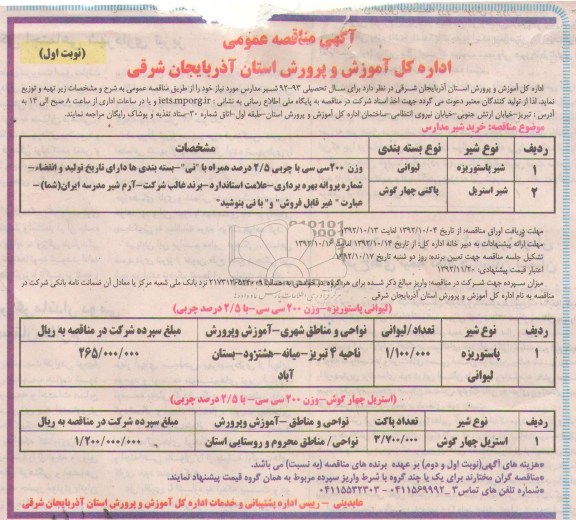 آگهی مناقصه عمومی
(نوبت اول)
اداره کل آموزش و پرورش استان آذربایجان شرقی
اداره کل آموزش و پرورش استان آذربایجان شرقی در نظر دارد برای سال تحصیلی ۹۳-۹۲ شیر مدارس مورد نیاز خود را از طریق مناقصه عمومی به شرح و مشخصات زیر تهیه و توزیع
نماید. لذا از تولید کنندگان معتبر دعوت می گردد جهت اخذ اسناد شرکت در مناقصه به پایگاه ملی اطلاع رسانی به نشانی : iets.mporg.ir و یا در ساعات اداری از ساعت ۸ صبح الی ۱۴ به
آدرس : تبریز-خیابان ارتش جنوبی-خیابان نیروی انتظامی-ساختمان اداره کل آموزش و پرورش استان-طبقه اول-اتاق شماره ۳۰-ستاد تغذیه و پوشاک رایگان مراجعه نمایند.
موضوع مناقصه: خرید شیر مدارس
ردیف نوع شیر نوع بسته بندی مشخصات
۱ شیر پاستوریزه لیوانی وزن ۲۰۰سی سی با چربی ۲/۵ درصد همراه با "نی"-بسته بندی ها دارای تاریخ تولید و انقضاء-
۲ شیر استریل پاکتی چهار گوش شماره پروانه بهره برداری-علامت استاندارد-برند غالب شرکت-آرم شیر مدرسه ایران(شما)-
عبارت " غیر قابل فروش" و" با نی بنوشید"
مهلت دریافت اوراق مناقصه: از تاریخ ۱۳۹۲/۱۰/۰۴ لغایت ۱۳۹۲/۱۰/۱۳
مهلت ارائه پیشنهادات به دبیر خانه اداره کل: از تاریخ ۱۳۹۲/۱۰/۱۴ لغایت ۱۳۹۲/۱۰/۱۶
تشکیل جلسه مناقصه جهت تعیین برنده: روز دو شنبه تاریخ ۱۳۹۲/۱۰/۱۷
اعتبار قیمت پیشنهادی: ۱۳۹۲/۱۱/۲۰
میزان سپرده جهت شرکت در مناقصه: واریز مبالغ ذکر شده برای هر گروه نزد بانک ملی شعبه مرکز یا معادل آن ضمانت نامه بانکی شرکت در
مناقصه به نام اداره کل آموزش و پرورش استان آذربایجان شرقی
(لیوانی پاستوریزه-وزن ۲۰۰ سی سی-با ۲/۵ درصد چربی)
ردیف نوع شیر تعداد/لیوانی نواحی و مناطق شهری-آموزش وپرورش مبلغ سپرده شرکت در مناقصه به ریال
۱ پاستوریزه لیوانی ۱/۱۰۰/۰۰۰ ناحیه ۴ تبریز-میانه-هشترود-بستان آباد ۲۶۵/۰۰۰/۰۰۰
(استریل چهار گوش-وزن ۲۰۰ سی سی-با ۲/۵ درصد چربی)
ردیف نوع شیر تعداد پاکت نواحی و مناطق -آموزش وپرورش مبلغ سپرده شرکت در مناقصه به ریال
۱ استریل چهار گوش ۳/۷۰۰/۰۰۰ نواحی/ مناطق محروم و روستایی استان ۱/۲۰۰/۰۰۰/۰۰۰
*هزینه های آگهی(نوبت اول و دوم) بر عهده برنده های مناقصه (به نسبت) می باشد.
*مناقصه گران مختارند برای یک یا چند گروه با شرط واریز سپرده مربوط به همان گروه قیمت پیشنهاد نمایند.
*شماره تلفن های تماس ۳_۰۴۱۱۵۶۹۹۹۲ - ۰۴۱۱۵۵۳۲۳۰۳
عابدینی - رییس اداره پشتیبانی و خدمات اداره کل آموزش و پرورش استان آذربایجان شرقی